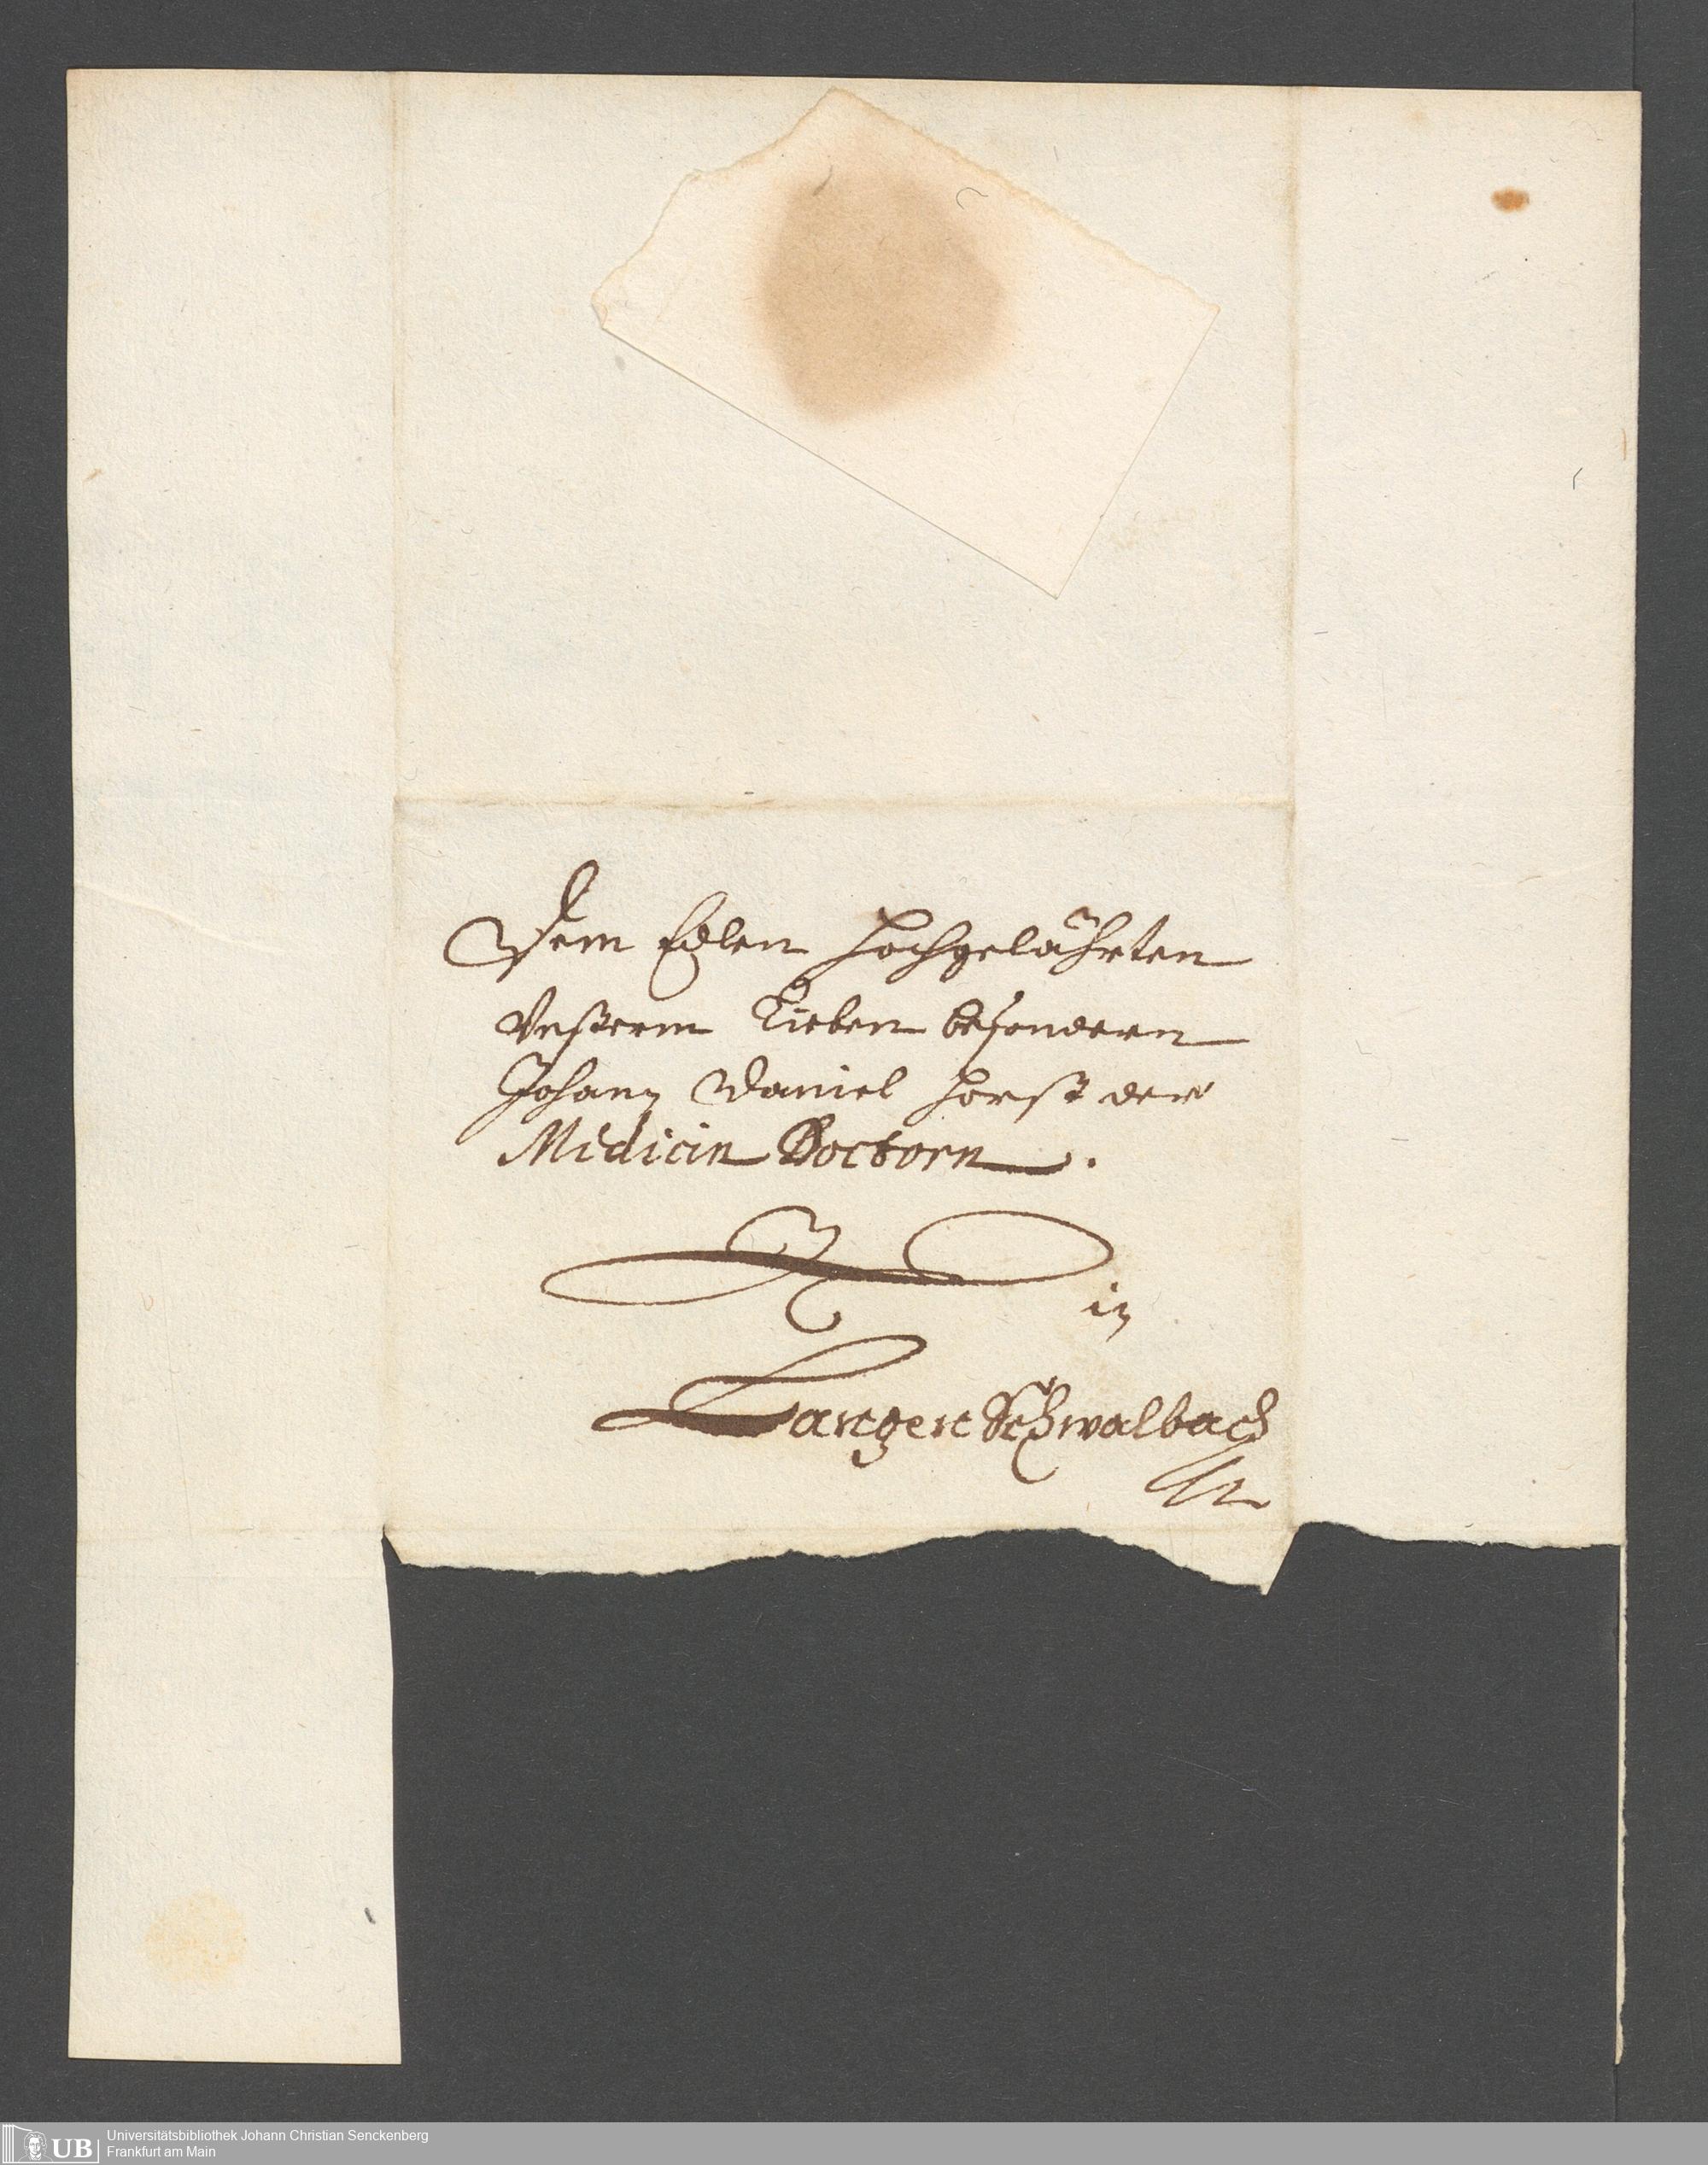 Dem Edlen Hochgelährten
Unßerm Lieben besondern
Johann Daniel Horst der
Medicin Doctorn.
in
Langen Schwalbach
UB
Universitätsbibliothek Johann Christian Senckenberg
Frankfurt am Main